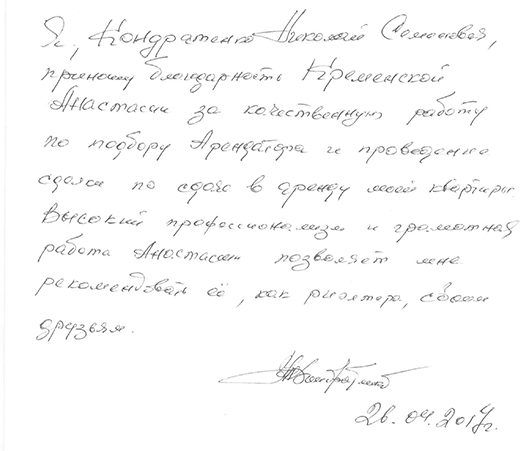 Я, Кондратенко Николай Семенович,
приношу благодарность Кременской
Анастасии за качественную работу
по подбору Арендатора и проведение
сделки по сдаче в аренду моей квартиры.
Высокий профессионализм и грамотная
работа Анастасии позволяет мне
рекомендовать её, как риэлтора, своим
друзьям.
26.04.2017г.